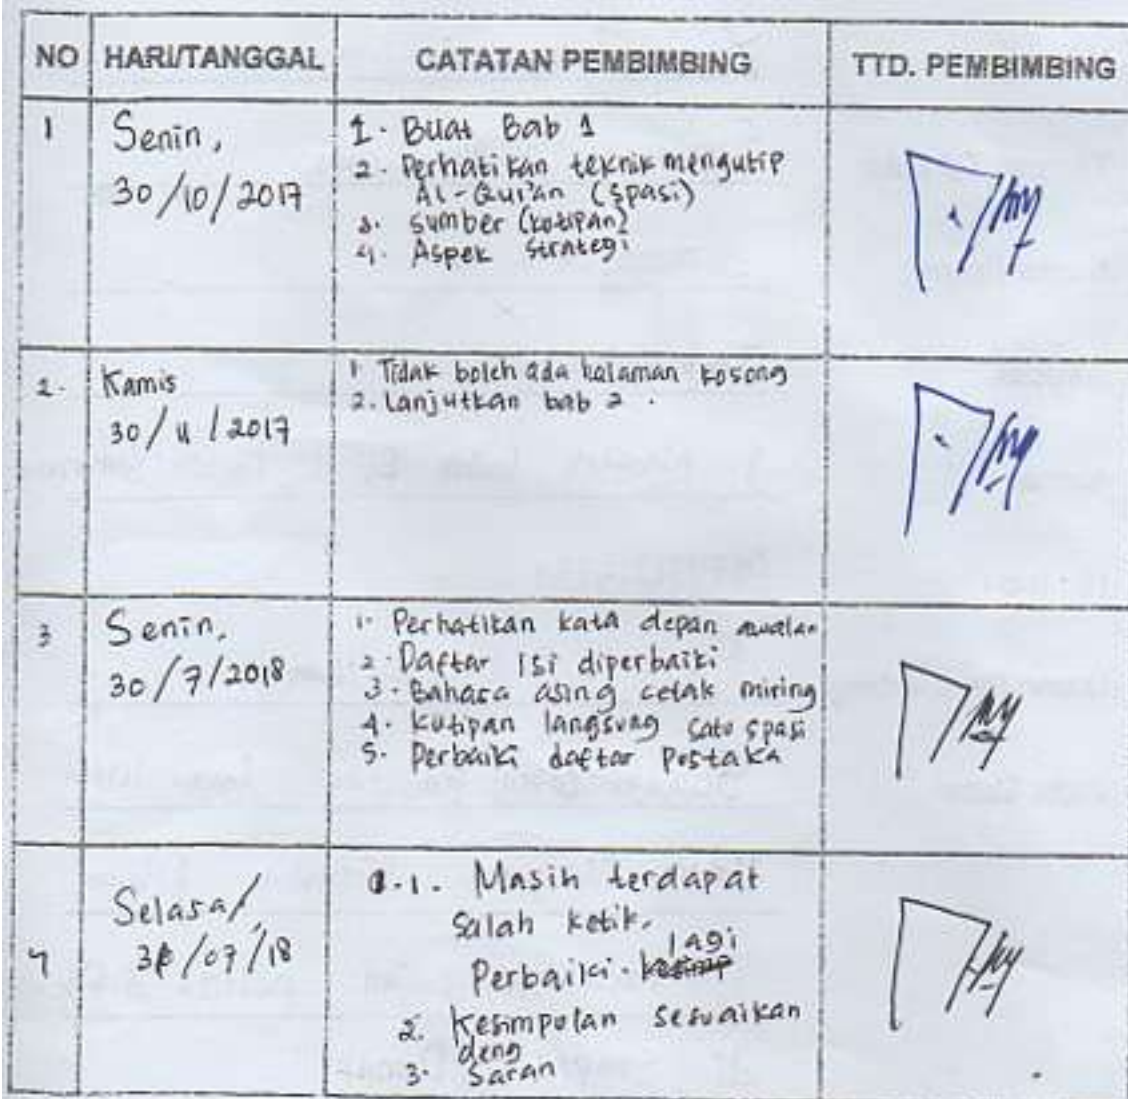 NO HARI/TANGGAL CATATAN PEMBIMBING TTD. PEMBIMBING
1 Senin,
30/10/2017
1. Buat Bab 1
2. Perhatikan teknik mengutip
Al-Qur'an (spasi)
3. sumber (kutipan)
4. Aspek strategi
2. Kamis
30/11/2017
1. Tidak boleh ada halaman kosong
2. Lanjutkan bab 2.
3 Senin,
30/7/2018
1. Perhatikan kata depan awalan
2. Daftar isi diperbaiki
3. Bahasa asing cetak miring
4. kutipan langsung satu spasi
5. Perbaiki daftar Pustaka
4 Selasa/,
/07/18
1. Masih terdapat
salah ketik.
Perbaiki. lagi
2. Kesimpulan sesuaikan
deng
3. Saran